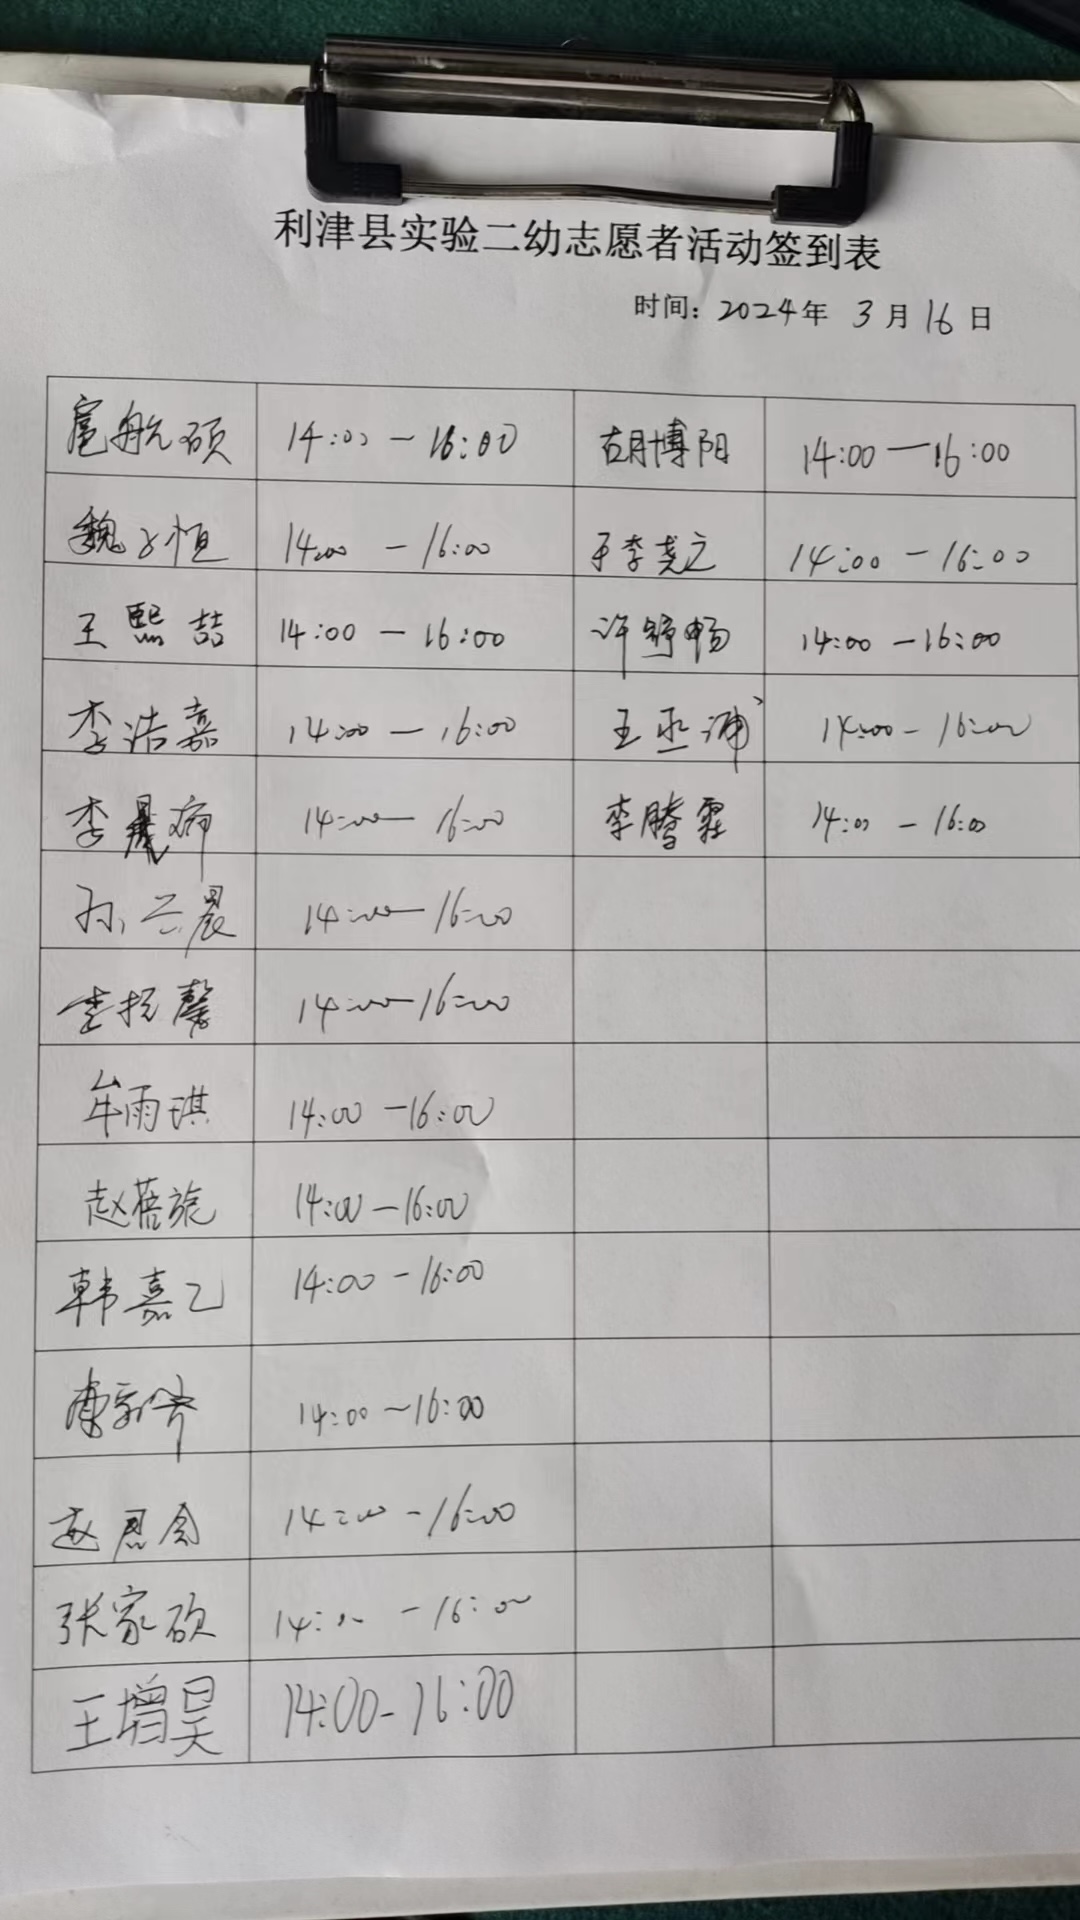 利津县实验二幼志愿者活动签到表
时间：2024年 3月16日
扈航硕 14:00—16:00 胡博阳 14:00—16:00
魏子恒 14:00—16:00 于李尧之 14:00—16:00
王熙喆 14:00—16:00 许舒畅 14:00—16:00
李浩嘉 14:00—16:00 王丞 14:00—16:00
李晨 14:00—16:00 李腾霏 14:00—16:00
孙艺晨 14:00—16:00
李 馨 14:00—16:00
牟雨琪 14:00—16:00
赵蓓旎 14:00—16:00
韩嘉乙 14:00—16:00
14:00~16:00
14:00—16:00
张家硕 14:00—16:00
王增昊 14:00-16:00